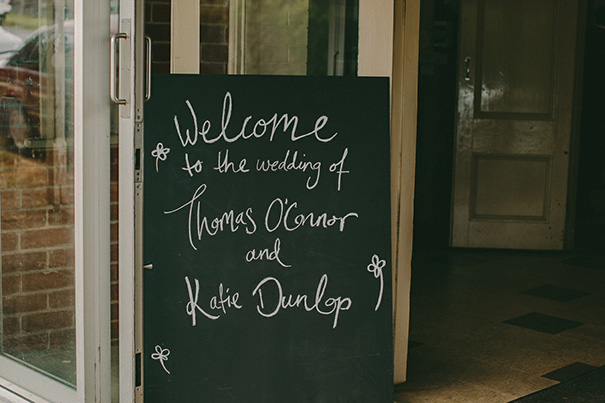 Welcome
to the wedding of
Thomas O'Connor
and
Katie Dunlop